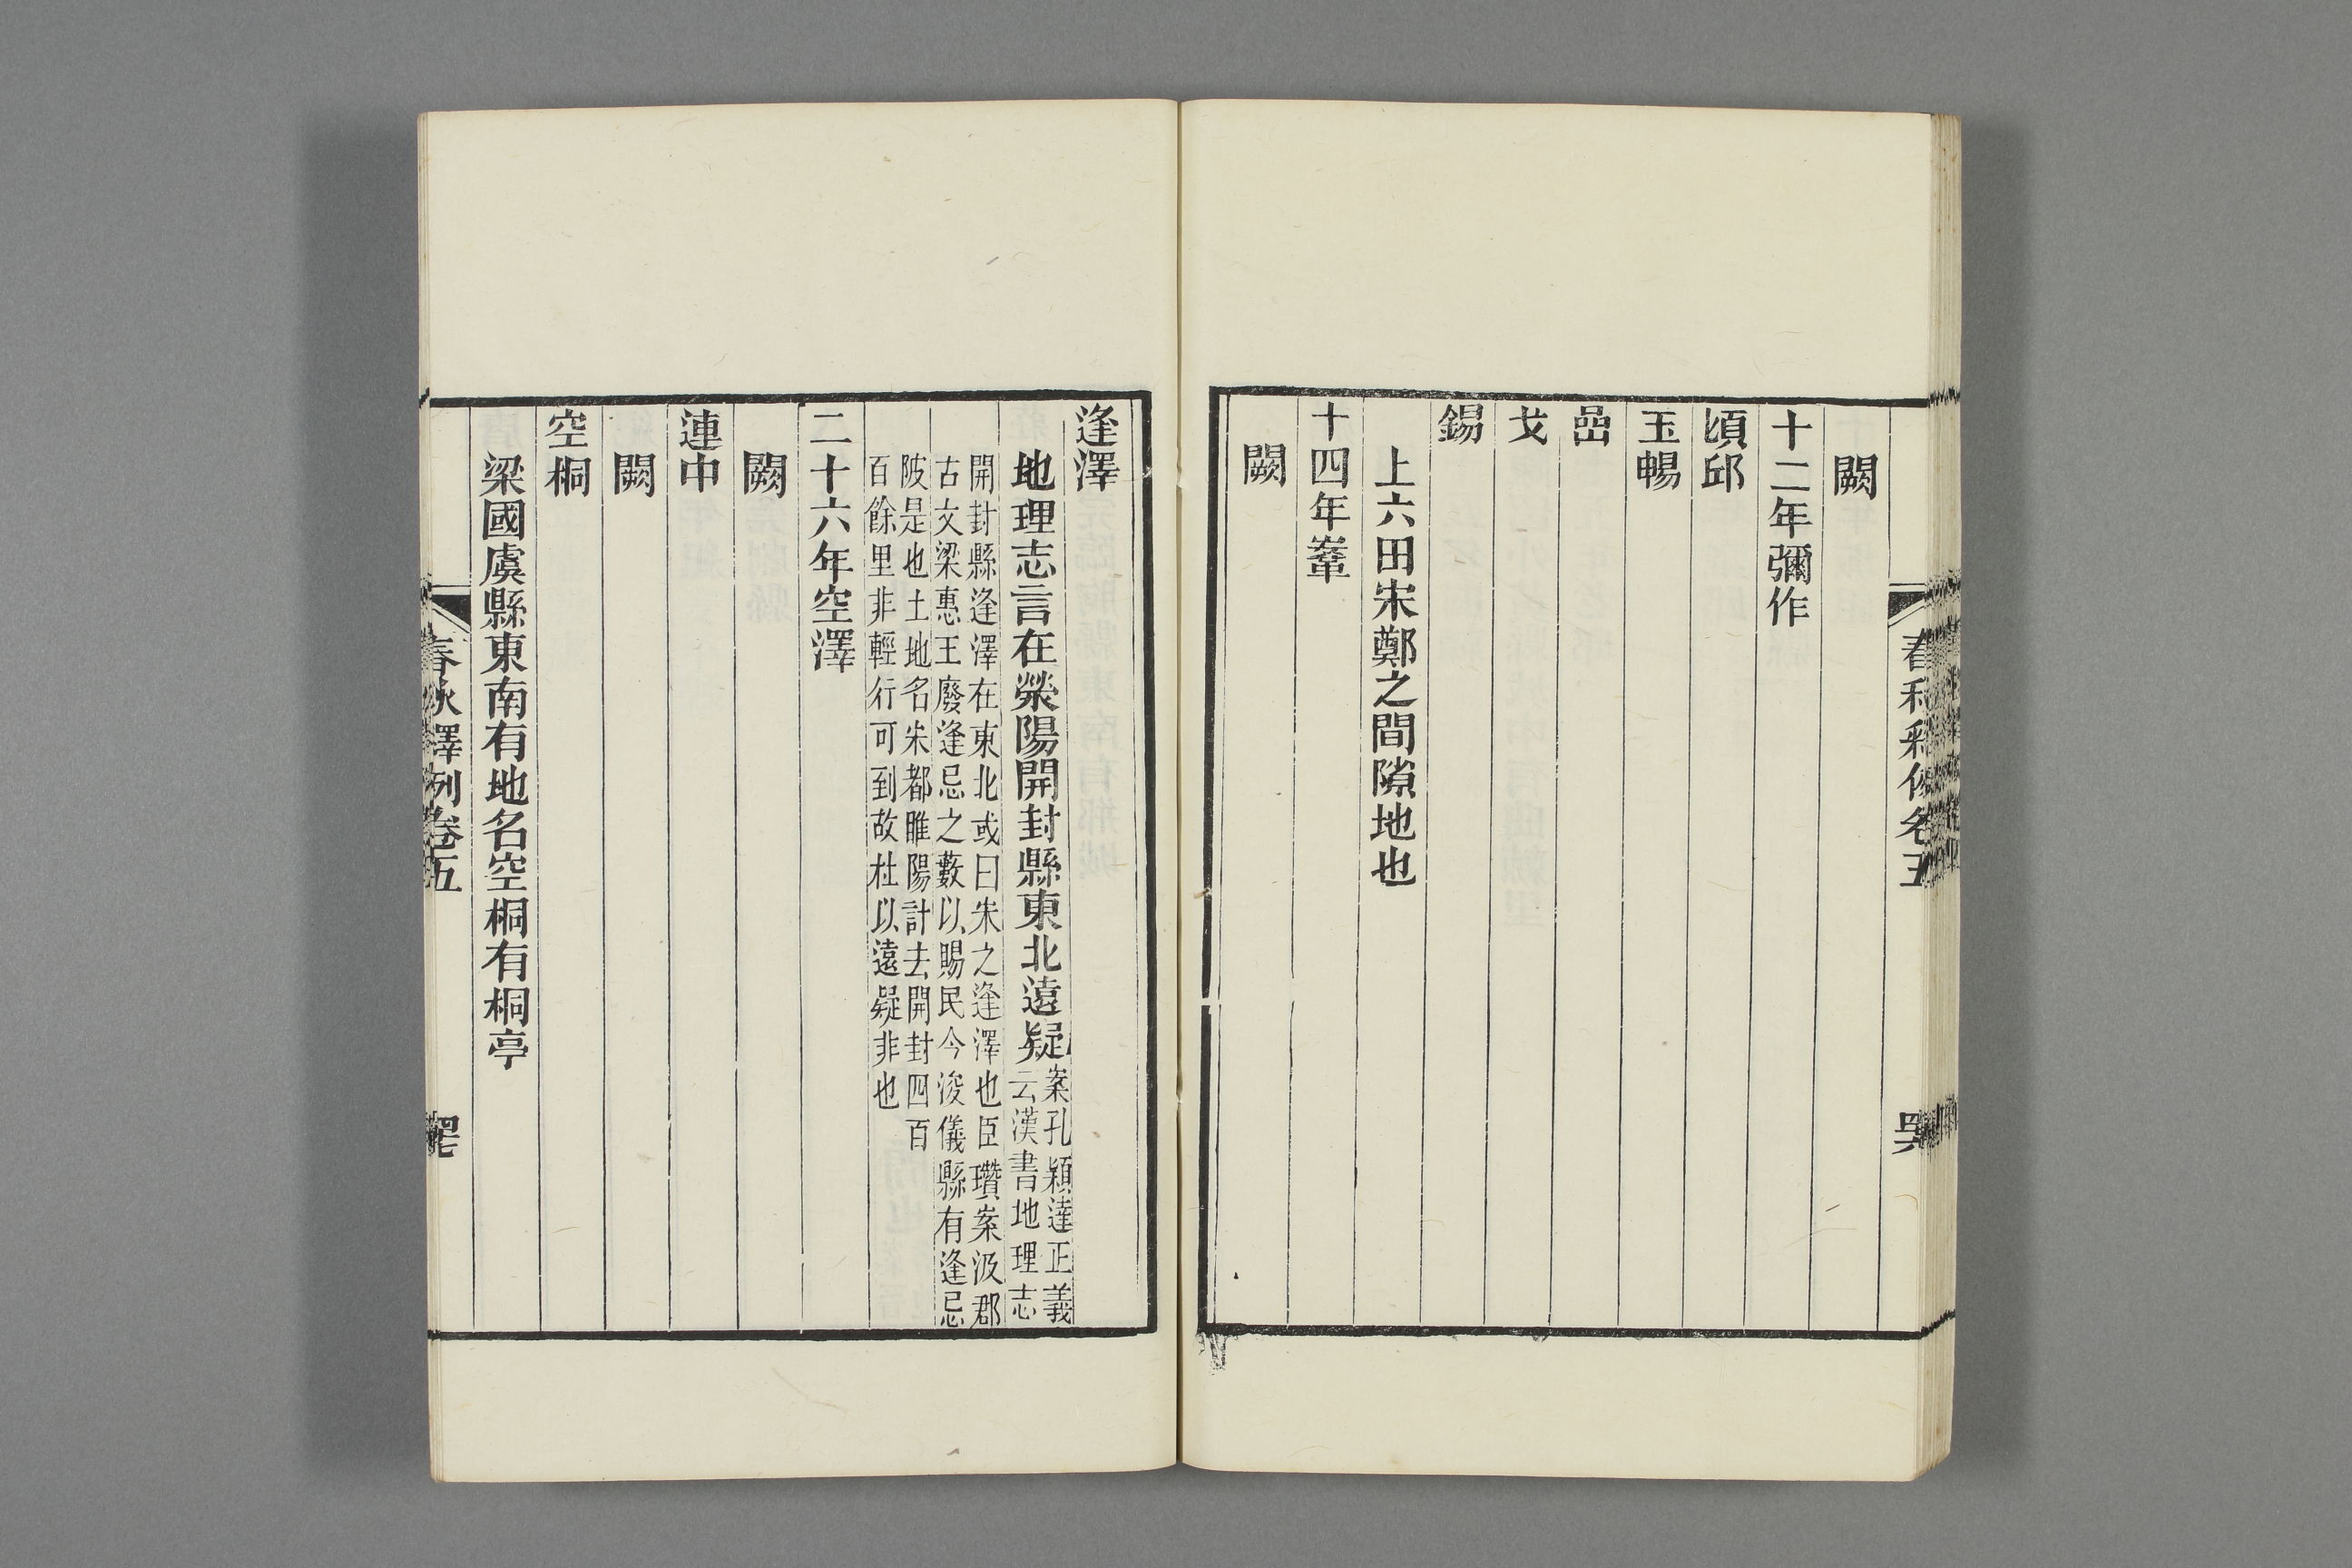 闕
十二年彌作
頃邱
玉暢
嵒
戈
錫
上六田宋鄭之間隙地也
十四年輂
闕
逢澤
地理志言在滎陽開封縣東北遠疑
案孔穎達正義
云漢書地理志
開封縣逢澤在東北或曰宋之逢澤也臣瓚案汲郡
古文梁惠王廢逢忌之藪以賜民今浚儀縣有逢忌
陂是也土地名宋都睢陽計去開封四百
百餘里非輕行可到故杜以遠疑非也
二十六年空澤
闕
連中
闕
空桐
梁國虞縣東南有地名空桐有桐亭
春秋釋例卷五